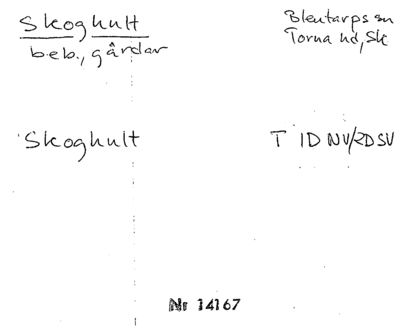 Skoghult
beb., gårdar
Blentarps sn
Torna hd, Sk
Skoghult
T 1D NV/2D SV
Nr 14167